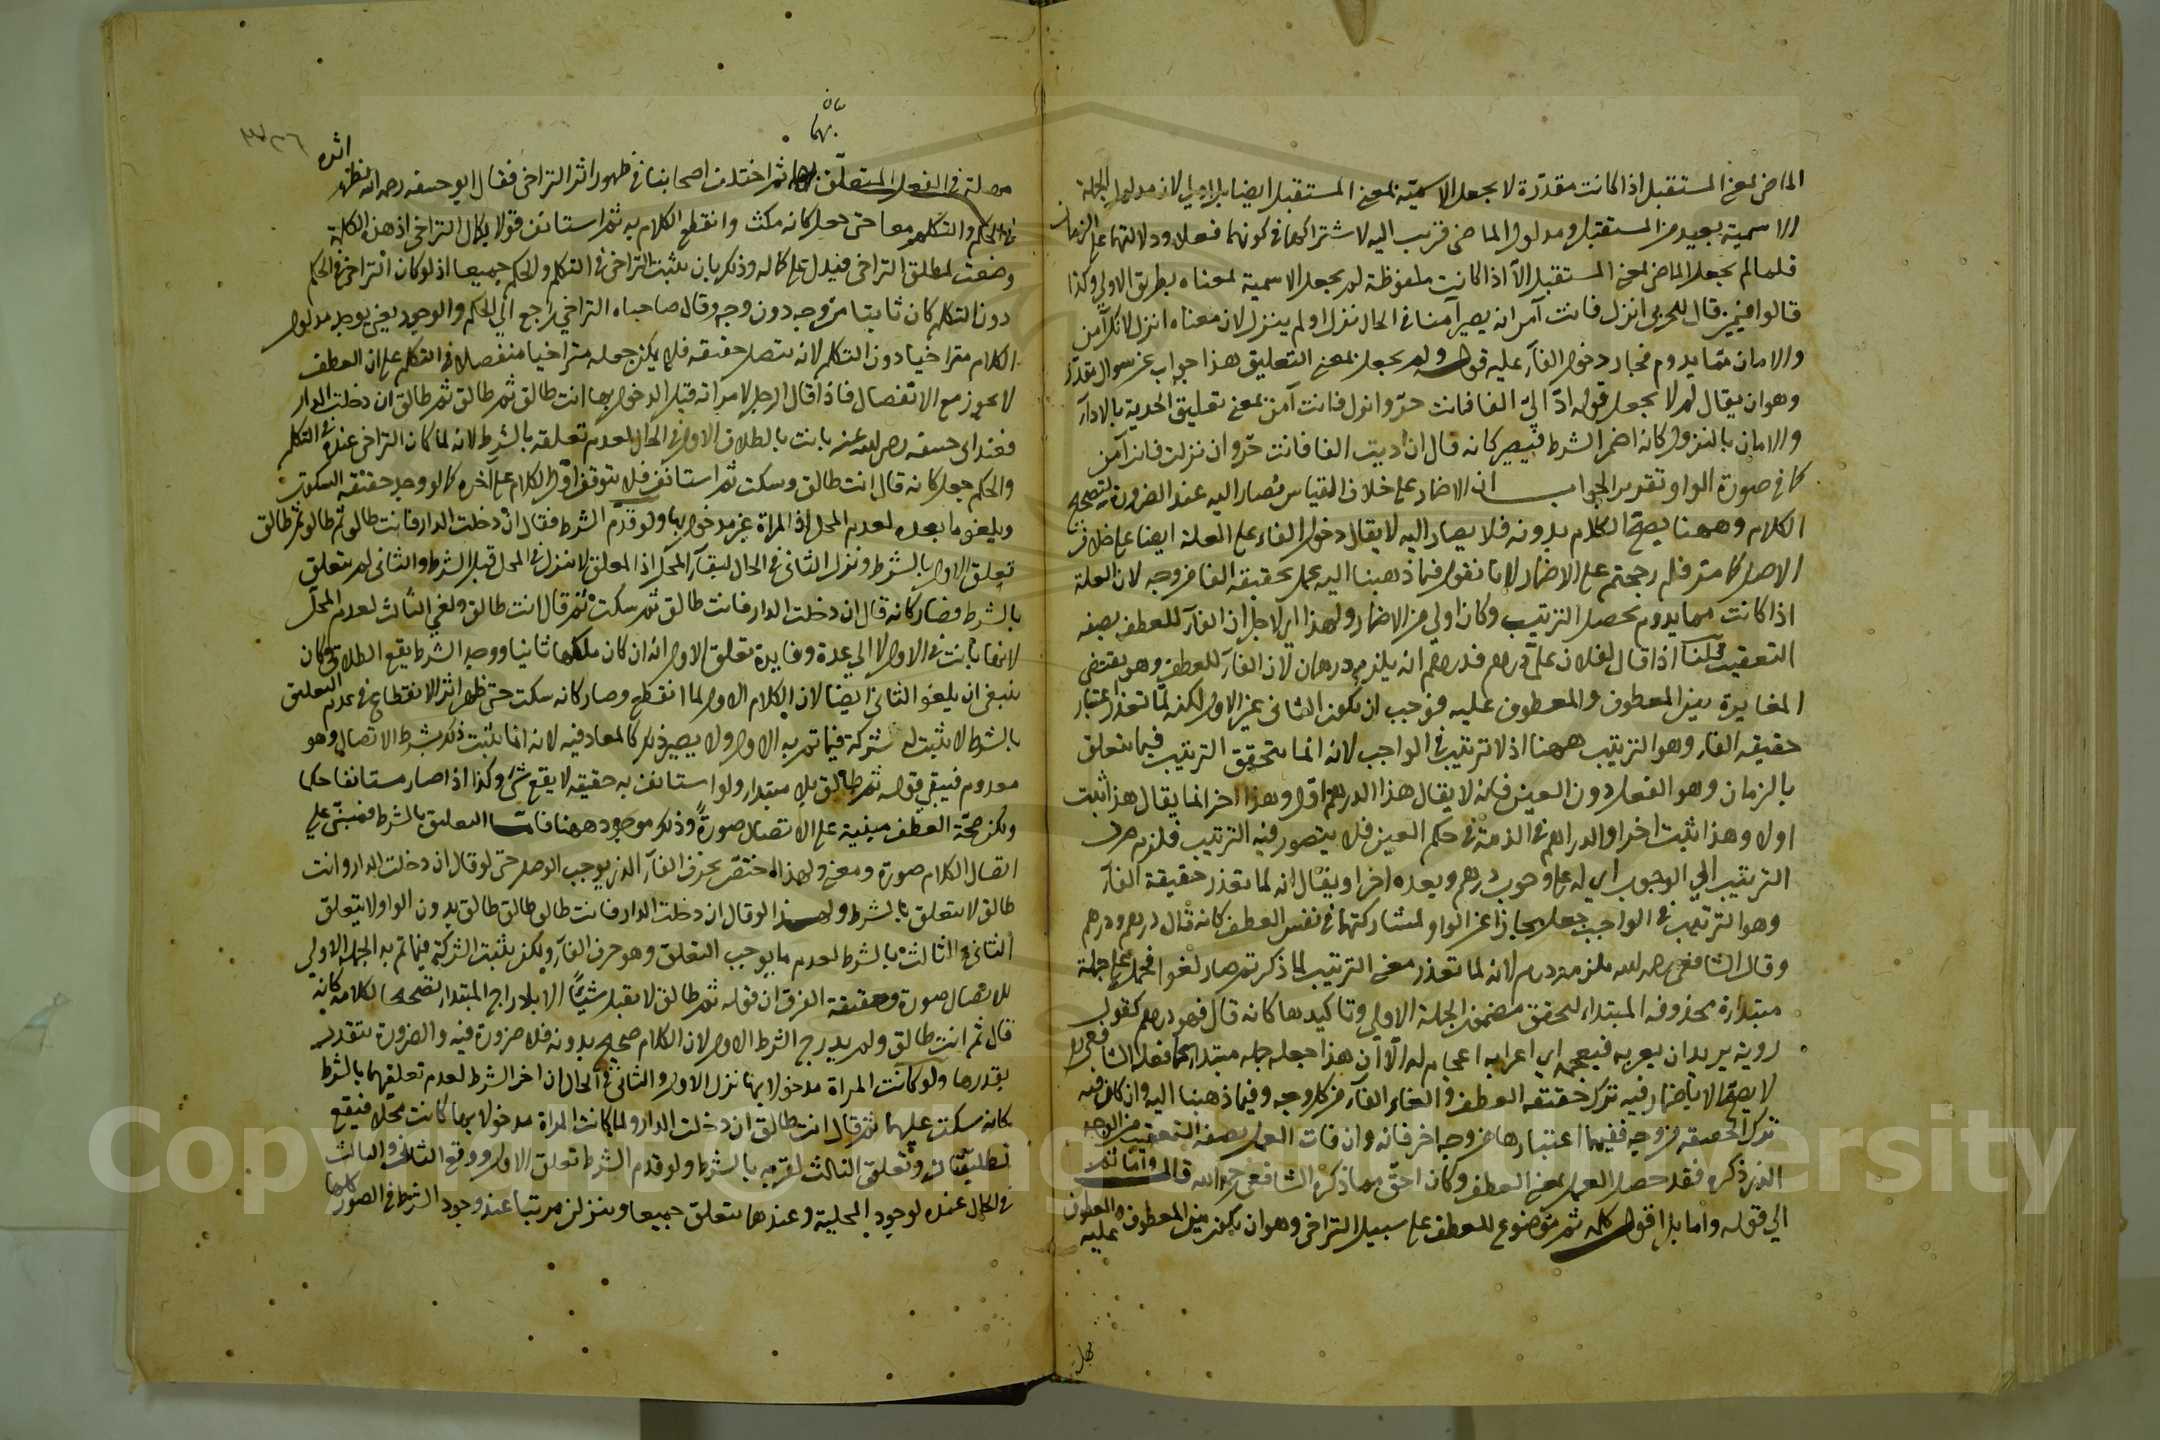 الماضي بمعنى المستقبل اذا كانت مقدّرة لا يجعل الاسميّة بمعنى المستقبل ايضا بل اولى لان مدلول الجملة
الاسمية بعيد من المستقبل ومدلول الماضي قريب اليه لاشتراكهما في كونهما فعلا ودلالتهما على الزمان
فلما لم يجعل الماضي بمعنى المستقبل الا اذا كانت ملفوظة لم يجعل الاسمية بمعناه بطريق الاولى وكذا
قالوا فيمن قال للحربي انزل فانت آمن انه يصير آمنا في الحال نزل او لم ينزل لان معناه انزل لانك آمن
والامان مما يدوم فجاز دخول الفاء عليه قوله ولم يجعل بمعنى التعليق هذا جواب عن سوال مقدّر
وهو ان يقال لم لا يجعل قوله ادّ اليّ الفا فانت حرّ وانزل فانت آمن بمعنى تعليق الحرية بالاداء
والامان بالنزول كانه اضمر الشرط فيصير كانه قال ان اديت الفا فانت حرّ وان نزلت فانت آمن
كما في صورة الواو وتقرير الجواب ان الاضمار على خلاف القياس فيصار اليه عند الضرورة لتصحيح
الكلام وههنا يصح الكلام بدونه فلا يصار اليه لا يقال دخول الفاء على العلة ايضا على خلاف
الاصل كما مر فلم رجحتم على الاضمار لانا نقول فيما ذهبنا اليه عمل بحقيقة الفا من وجه لان العلة
اذا كانت مما يدوم يحصل الترتيب وكان اولى من الاضمار ولهذا اي لاجل ان الفاء للعطف بصفة
التعقيب قلنا اذا قال لفلان عليّ درهم فدرهم انه يلزمه درهمان لان الفاء للعطف وهو يقتضي
المغايرة بين المعطوف والمعطوف عليه فوجب ان يكون الثاني غير الاول لكنه لما تعذر اعتبار
حقيقة الفاء وهو الترتيب ههنا اذ لا ترتيب في الواجب لانه انما يتحقق الترتيب فيما يتعلق
بالزمان وهو الفعل دون العين فانه لا يقال هذا الدرهم اول وهذا اخر انما يقال هذا ثبت
اولا وهذا ثبت اخرا والدراهم في الذمة في حكم العين فلا يتصور فيه الترتيب فلزم صرف
الترتيب الى الوجوب اي له عليّ وجوب درهم وبعده اخر او يقال انه لما تعذر حقيقة الفاء
وهو الترتيب في الواجب جعل مجازا عن الواو لمشاركتهما في نفس العطف كانه قال درهم ودرهم
وقال الشافعي رحمه الله يلزمه درهم لانه لما تعذر معنى الترتيب لما ذكرتم صار لغوا فحمل على جملة
مبتدأة محذوفة المبتداء لتحقق مضمون الجملة الاولى وتاكيدها كانه قال فهو درهم كقول
روبة يريد ان يعربه فيعجمه اي اعرابه اعجام له الا ان هذا جعله جملة مبتداة كما فعله الشافعي
لا يصح الا باضمار فيه ترك حقيقة العطف والغاء الفاء من كل وجه وفيما ذهبنا اليه وان كان فيه
ترك الحقيقة من وجه ففيها اعتبارها من وجه اخر فانه وان فات العمل بصفة التعقيب من الوجه
الذي ذكره فقد حصل العمل بمعنى العطف وكان احق مما ذكره الشافعي رحمه الله قال واما ثم
الى قوله واما بل اقول كلمة ثم موضوع للعطف على سبيل التراخي وهو ان يكون بين المعطوف والمعطوف
عليه
بيان
بهما
مهلة في الفعل المتعلق بهما ثم اختلف اصحابنا في ظهور اثر التراخي فقال ابو حنيفة رحمه الله يظهر اثره
في الحكم والتكلم معا حتى جعل كانه سكت وانقطع الكلام به ثم استانف قولا بكمال التراخي اذ هذه الكلمة
وضعت لمطلق التراخي فيدل على كماله وذلك بان يثبت التراخي في التكلم والحكم جميعا اذ لو كان التراخي في الحكم
دون التكلم كان ثابتا من وجه دون وجه وقال صاحباه التراخي راجع الى الحكم والوجود يعني يوجد مدلول
الكلام متراخيا دون التكلم لانه متصل حقيقة فلا يمكن جعله متراخيا منفصلا في التكلم على ان العطف
لا يجوز مع الانفصال فاذا قال الرجل لامراته قبل الدخول بها انت طالق ثم طالق ثم طالق ان دخلت الدار
فعند ابي حنيفة رضي الله عنه بانت بالطلاق الاول في الحال لعدم تعلقه بالشرط لانه لما كان التراخي عنده في التكلم
والحكم جعل كانه قال انت طالق وسكت ثم استانف فلا يتوقف اول الكلام على آخره كما لو وجد حقيقة السكوت
ويلغو ما بعده لعدم المحل اذ المراة غير مدخول بها ولو قدّم الشرط فقال ان دخلت الدار فانت طالق ثم طالق ثم طالق
تعلق الاول بالشرط ونزل الثاني في الحال لبقاء المحل اذ المعلق لا ينزل في المحل قبل الشرط والثاني لم يتعلق
بالشرط فصار كانه قال ان دخلت الدار فانت طالق ثم سكت ثم قال انت طالق ولغي الثالث لعدم المحل
لانها بانت في الاول لا الى عدة وفايدة تعلق الاول انه ان كان ملكها ثانيا ووجد الشرط يقع الطلاق وكان
ينبغي ان يلغو الثاني ايضا لان الكلام الاول لما انقطع وصار كانه سكت حتى ظهر اثر الانقطاع في عدم التعليق
بالشرط لا يثبت له شركة فيما تم به الاول ولا يصير ذلك كالمعاد فيه لانه انما يثبت ذلك بشرط الاتصال وهو
معدوم فيبقى قوله ثم طالق بلا مبتدا ولو استانف به حقيقة لا يقع شئ وكذا اذا صار مستانفا حكما
ولكن صحة العطف مبنية على الاتصال صورة وذلك موجود ههنا فاما التعليق بالشرط فمبني على
اتصال الكلام صورة ومعنى ولهذا اختص بحرف الفاء الذي يوجب الوصل حتى لو قال ان دخلت الدار وانت
طالق لا يتعلق بالشرط ولهذا لو قال ان دخلت الدار فانت طالق طالق طالق بدون الواو لا يتعلق
الثاني والثالث بالشرط لعدم ما يوجب التعلق وهو حرف الفاء ولكن يثبت الشركة فيما تم به الجملة الاولى
للاتصال صورة وحقيقة الفرق ان قوله ثم طالق لا يقبل شيئا الا بادراج المبتدا تصحيحا لكلامه كانه
قال ثم انت طالق ولم يدرج الشرط الاول لان الكلام صحيح بدونه فلا ضرورة فيه والضرورة تتقدر
بقدرها ولو كانت المراة مدخولا بها نزل الاول والثاني في الحال ان اخر الشرط لعدم تعلقهما بالشرط
كانه سكت عليهما ثم قال انت طالق ان دخلت الدار ولما كانت المراة مدخولا بها كانت محلا فيقع
تطليقتان وتعلق الثالث لقربه بالشرط ولو قدم الشرط تعلق الاول ووقع الثاني والثالث
في الحال عنده لوجود المحلية وعندهما يتعلق جميعا وينزلن مرتبا عند وجود الشرط في الصور كلها
Copyright © King Saud University